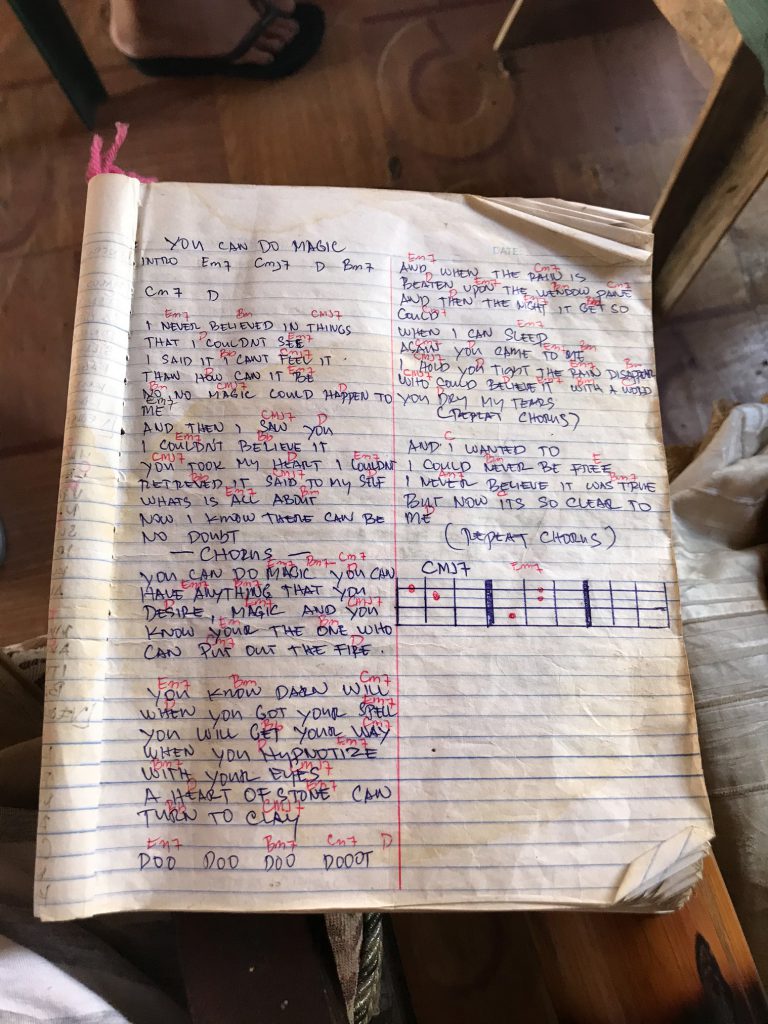 YOU CAN DO MAGIC
INTRO Em7 CMJ7 D Bm7
Cm7 D
Em7 Bm CMJ7
I NEVER BELIEVED IN THINGS
D Em7
THAT I COULDNT SEE
Bb CMJ7
I SAID IT I CANT FEEL IT
D Em7
THAN HOW CAN IT BE
Bm CMJ7 D
NO NO MAGIC COULD HAPPEN TO
Em7
ME
CMJ7 D
AND THEN I SAW YOU
Em7 Bb
I COULDNT BELIEVE IT
CMJ7 D Em7
YOU TOOK MY HEART I COULDNT
Bm
RETRIEVED IT SAID TO MY SELF
Em7 Bm
WHATS IS ALL ABOUT
NOW I KNOW THERE CAN BE
NO DOUBT
— CHORUS —
Em7 Bm7 Cm7
YOU CAN DO MAGIC YOU CAN
Em7 Bm7 D
HAVE ANYTHING THAT YOU
D CMJ7
DESIRE, MAGIC AND YOU
Em Bm
KNOW YOUR THE ONE WHO
Cm7 D
CAN PUT OUT THE FIRE.
Em7 Bm Cm7
YOU KNOW DARN WILL
D Em7
WHEN YOU GOT YOUR SPELL
Bb Cm7
YOU WILL GET YOUR WAY
D Em7
WHEN YOU HYPNOTIZE
Bm7 CMJ7
WITH YOUR EYES
D Em7
A HEART OF STONE CAN
Bb CMJ7
TURN TO CLAY
Em7 Bm7 Cm7 D
DOO DOO DOO DOOOT
DATE
Em7 Cm7
AND WHEN THE RAIN IS
D Em7 Bm Cm7
BEATEN UPON THE WENDOW PANE
D Em7 Bb
AND THEN THE NIGHT IT GET SO
COULD
Em7
WHEN I CAN SLEEP
D Em7 Bm
AGAIN YOU CAME TO ME
CMJ7 D Em7 Bm
I HOLD YOU TIGHT THE RAIN DISAPPEAR
D Em7 Bm
WHO COULD BELIEVE IT WITH A WORD
CMJ7 D
YOU DRY MY TEARS
(REPEAT CHORUS)
C
AND I WANTED TO
Bm E
I COULD NEVER BE FREE
Am7 Bm7
I NEVER BELIEVE IT WAS TRUE
C
BUT NOW ITS SO CLEAR TO
D
ME
(REPEAT CHORUS)
CMJ7 Em7